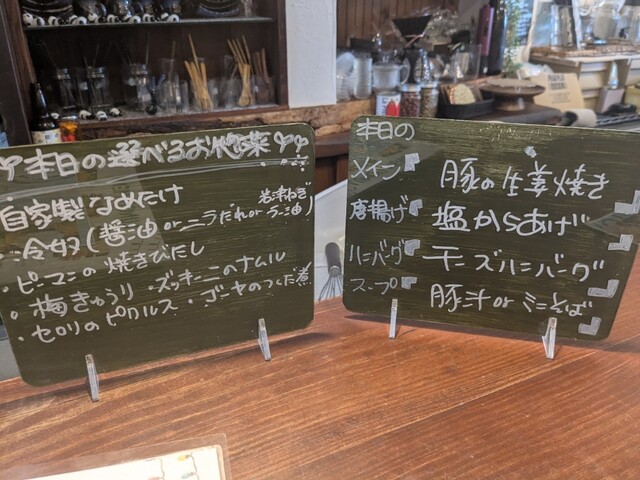 本日の選べるお惣菜
自家製なめたけ
・冷奴(醤油orニラだれorラー油)
岩津ねぎ
・ピーマンの焼きびたし
・梅きゅうり・ズッキーニのナムル
・セロリのピクルス・ゴーヤのつくだ煮
本日の
メイン 豚の生姜焼き
唐揚げ 塩からあげ
ハンバーグ チーズハンバーグ
スープ 豚汁orミニそば